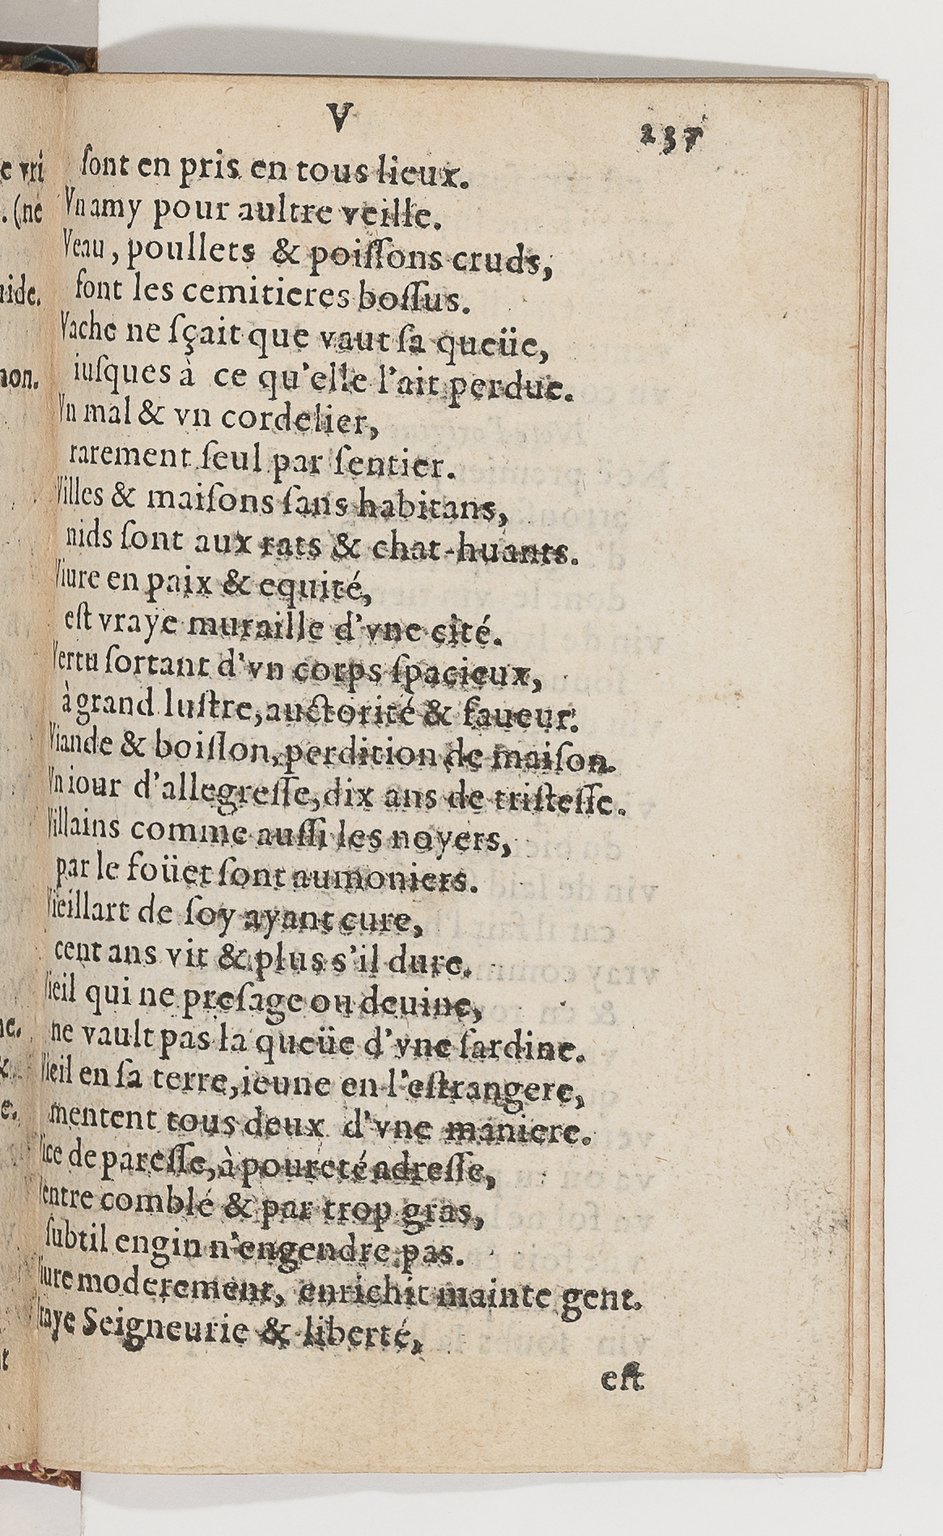 V
237
ſont en pris en tous lieux.
Vn amy pour aultre veille.
Veau, poullets & poiſſons cruds,
font les cemitieres boſſus.
Vache ne ſçait que vaut ſa queüe,
iuſques à ce qu'elle l'ait perdue.
Vn mal & vn cordelier,
rarement ſeul par ſentier.
Villes & maiſons ſans habitans,
nids ſont aux rats & chat-huants.
Viure en paix & equité,
eſt vraye muraille d'vne cité.
Vertu ſortant d'vn corps ſpacieux,
à grand luſtre, auctorité & faueur.
Viande & boiſſon, perdition de maiſon.
Vn iour d'allegreſſe, dix ans de triſteſſe.
Villains comme auſſi les noyers,
par le foüet ſont aumoniers.
Vieillart de ſoy ayant cure,
cent ans vit & plus s'il dure.
Vieil qui ne preſage ou deuine,
ne vault pas la queüe d'vne ſardine.
Vieil en ſa terre, ieune en l'eſtrangere,
mentent tous deux d'vne maniere.
Vice de pareſſe, à poureté adreſſe,
Ventre comblé & par trop gras,
ſubtil engin n'engendre pas.
Viure moderement, enrichit mainte gent.
Vraye Seigneurie & liberté,
eſt